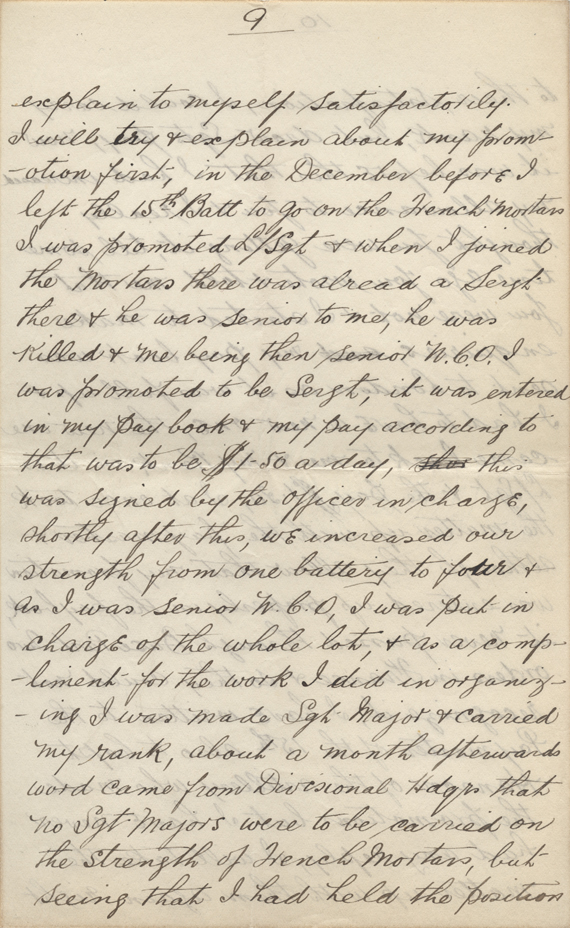 9
explain to myself satisfactorily.
I will try & explain about my prom-
-otion first, in the December before I
left the 15th Batt to go on the Trench Mortars
I was promoted L/Sgt & when I joined
the Mortars there was alread a Sergt
there & he was senior to me, he was
killed & me being then senior N.C.O. I
was promoted to be Sergt, it was entered
in my pay book & my pay according to
that was to be $1-50 a day, this
was signed by the officer in charge,
shortly after this, we increased our
strength from one battery to four &
as I was senior N.C.O, I was put in
charge of the whole lot, & as a comp-
-liment for the work I did in organiz-
-ing I was made Sgt Major & carried
my rank, about a month afterwards
word came from Divisional Hdqrs that
no Sgt Majors were to be carried on
the strength of Trench Mortars, but
seeing that I had held the position